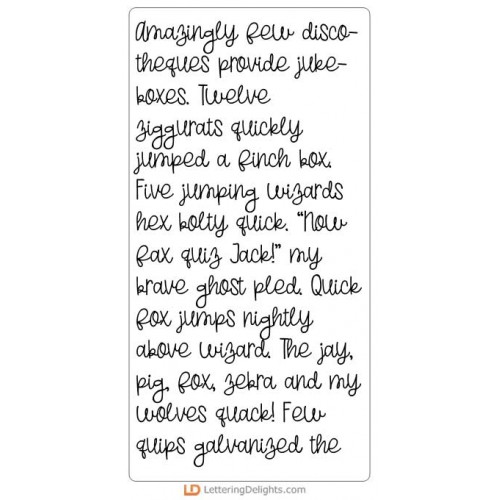 Amazingly few disco-
theques provide juke-
boxes. Twelve
ziggurats quickly
jumped a finch box.
Five jumping wizards
hex bolty quick. "Now
fax quiz Jack!" my
brave ghost pled. Quick
fox jumps nightly
above wizard. The jay,
pig, fox, zebra and my
wolves quack! Few
quips galvanized the
LD LetteringDelights.com